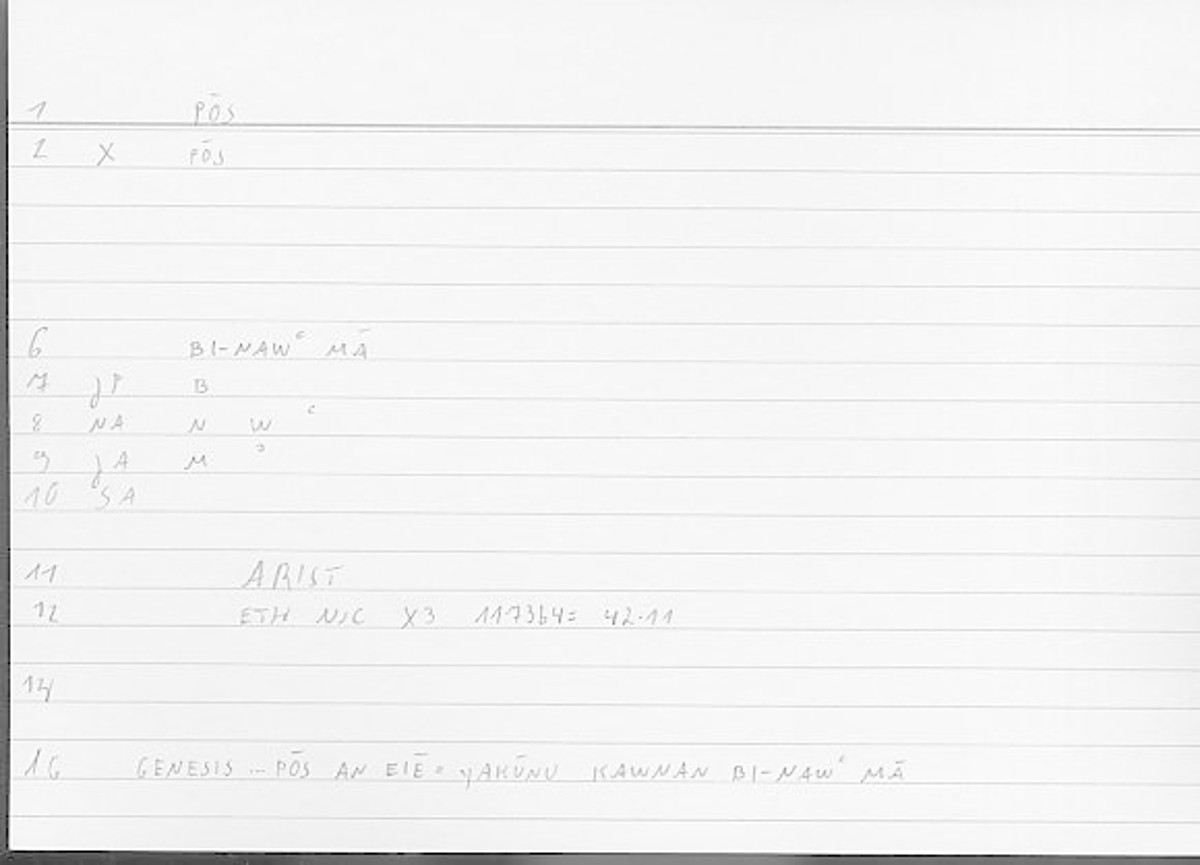 1 PŌS
2 X PŌS
6 BI-NAWʿ MĀ
7 jP B
8 NA N W ʿ
9 jA M ʾ
10 SA
11 ARIST
12 ETH NIC X3 1173b4= 42.11
14
16 GENESIS ... PŌS AN EIĒ = yAKŪNU KAWNAN BI-NAWʿ MĀ